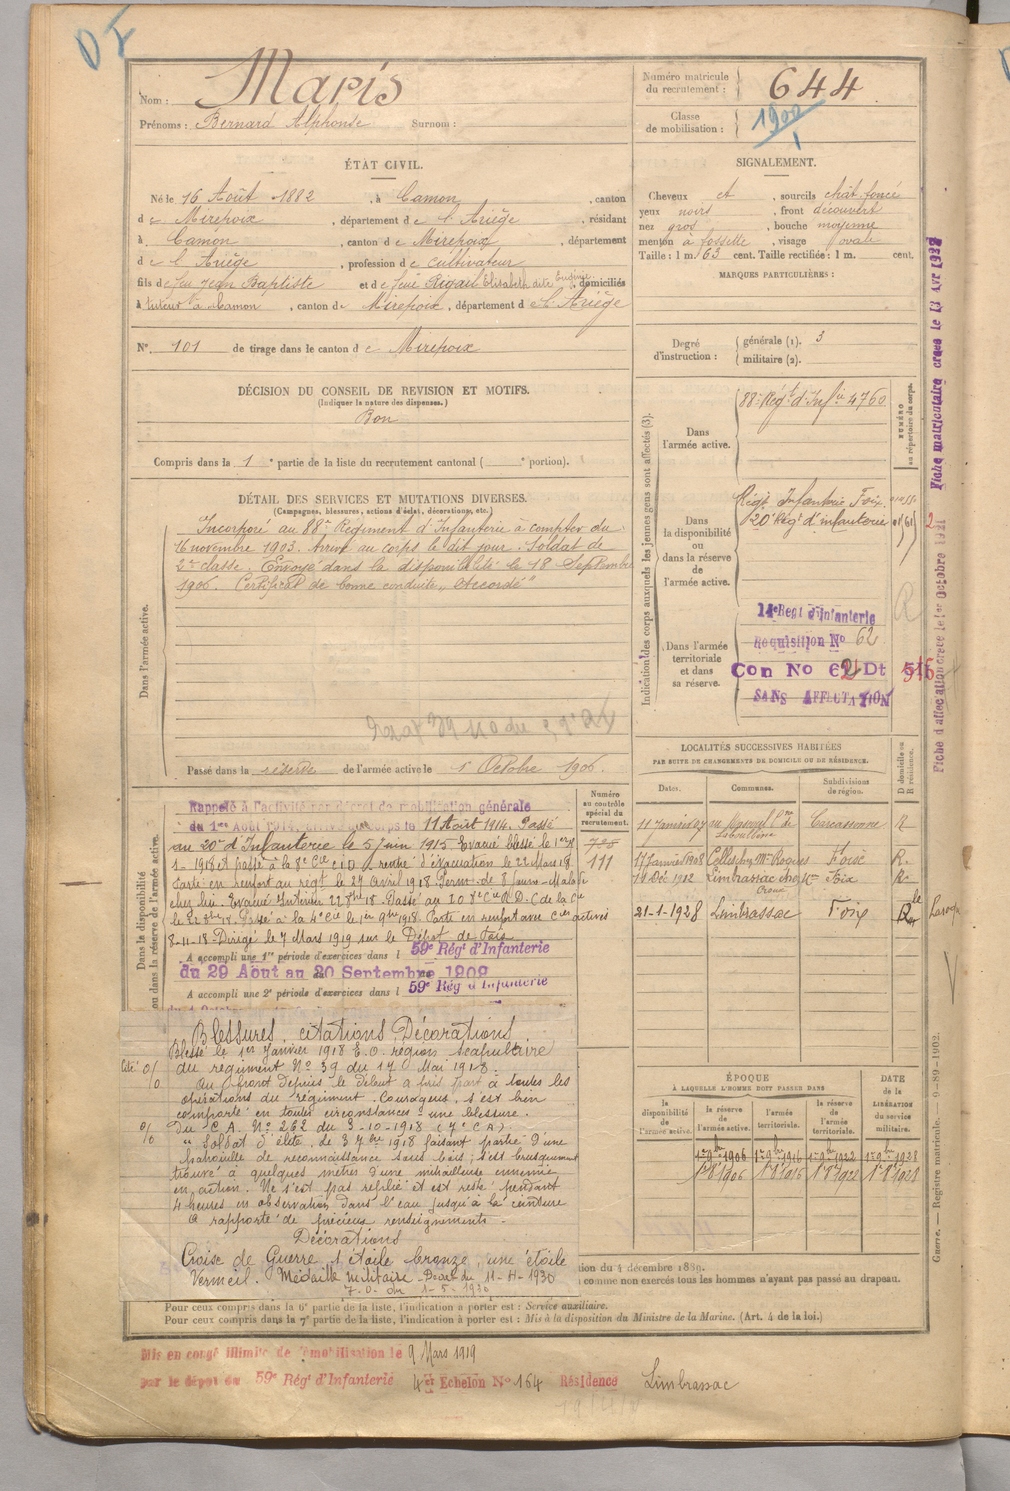 Nom : Maris
Prénoms : Bernard Alphonse Surnom :
Numéro matricule du recrutement : 644
Classe de mobilisation : 1900
ÉTAT CIVIL.
Né le 16 Août 1882, à Camon, canton
de Mirepoix, département de l'Ariège, résidant
à Camon, canton de Mirepoix, département
de l'Ariège, profession de cultivateur
fils de feu Jean Baptiste et de feue Rigail Elisabeth dite Eugénie, domiciliés
à tuteur à Camon, canton de Mirepoix, département de l'Ariège
N° 101 de tirage dans le canton de Mirepoix
SIGNALEMENT.
Cheveux et, sourcils chât foncé
yeux noirs, front découvert
nez gros, bouche moyenne
menton à fossette, visage ovale
Taille : 1 m. 63 cent. Taille rectifiée : 1 m. cent.
MARQUES PARTICULIÈRES :
Degré d'instruction : générale (1). 3
militaire (2).
DÉCISION DU CONSEIL DE REVISION ET MOTIFS.
(Indiquer la nature des dispenses.)
Bon
Compris dans la 1e partie de la liste du recrutement cantonal ( e portion).
DÉTAIL DES SERVICES ET MUTATIONS DIVERSES.
(Campagnes, blessures, actions d'éclat, décorations, etc.)
Dans l'armée active.
Incorporé au 88e Régiment d'Infanterie à compter du
16 novembre 1903. Arrivé au corps le dit jour. Soldat de
2e classe. Envoyé dans la disponibilité le 18 Septembre
1906. Certificat de bonne conduite "Accordé"
Passé dans la réserve de l'armée active le 1 Octobre 1906.
Indication des corps auxquels les jeunes gens sont affectés (3).
NUMÉRO au répertoire du corps.
Dans l'armée active.
88e Régt d'Infie 4760
Dans la disponibilité ou dans la réserve de l'armée active.
Régt Infanterie Foix
20e Régt d'infanterie
Dans l'armée territoriale et dans sa réserve.
14e Regt d'Infanterie
Requisition N° 62
Con No 62 Dt 516
SANS AFFECTATION
Fiche matriculaire créée le 13 Avr 1938
Fiche d'affectation créée le 1er Octobre 1931
LOCALITÉS SUCCESSIVES HABITÉES
PAR SUITE DE CHANGEMENTS DE DOMICILE OU DE RÉSIDENCE.
Dates. Communes. Subdivisions de région. D domicile ou R résidence.
11 Janvier 07 Carcassonne R
17 Janvier 1908 Foix R.
14 Déc 1912 Limbrassac Foix R.
21-1-1928 Limbrassac Foix
Dans la disponibilité ou dans la réserve de l'armée active.
Numéro au contrôle spécial du recrutement.
111
Rappelé à l'activité par décret de mobilisation générale
du 1er Août 1914. Arrivé aux corps le 11 Août 1914. Passé
au 20e d'Infanterie le 5 juin 1915. Evacué blessé le 1er
1-1918 et passé à la 8e Cie rentré d'évacuation le
Parti en renfort au régt le 27 Avril 1918
Passé à la 4e Cie le 1er 9bre 1918. Parti en renfort aux Cies actives
8-11-18. Dirigé le 7 Mars 1919 sur le Dépôt de Foix
A accompli une 1re période d'exercices dans l 59e Régt d'Infanterie
du 29 Août au 20 Septembre 1909
A accompli une 2e période d'exercices dans l 59e Régt d'Infanterie
Blessures, citations, Décorations
Blessé le 1er Janvier 1918 E.O. région scapulaire
Cité o/o du régiment N° 39 du 17 Mai 1918.
Au front depuis le début a pris part à toutes les
opérations du régiment. Courageux, s'est bien
comporté en toutes circonstances une blessure.
o/o du C.A. N° 262 du 3-10-1918 (7e C.A.)
"Soldat d'élite, le 3 7bre 1918 faisant partie d'une
patrouille de reconnaissance sous bois, s'est brusquement
trouvé à quelques mètres d'une mitrailleuse ennemie
en action. Ne s'est pas replié et est resté pendant
4 heures en observation dans l'eau jusqu'à la ceinture
a rapporté de précieux renseignements.
Décorations
Croix de Guerre 1 étoile bronze, une étoile
Vermeil. Médaille militaire Décret du 11-4-1930
J.O. du 1-5-1930
ÉPOQUE
À LAQUELLE L'HOMME DOIT PASSER DANS
DATE de la LIBÉRATION du service militaire.
la disponibilité de l'armée active. la réserve de l'armée active. l'armée territoriale. la réserve de l'armée territoriale.
1er 9bre 1906 1er 9bre 1916 1er 9bre 1922 1er 9bre 1928
tion du 4 décembre 1889.
comme non exercés tous les hommes n'ayant pas passé au drapeau.
Pour ceux compris dans la 6e partie de la liste, l'indication à porter est : Service auxiliaire.
Pour ceux compris dans la 7e partie de la liste, l'indication à porter est : Mis à la disposition du Ministre de la Marine. (Art. 4 de la loi.)
Guerre. — Registre matricule. — 9-89-1902.
Mis en congé illimité de démobilisation le 9 Mars 1919
par le dépôt du 59e Régt d'Infanterie 4er Echelon N° 164 Résidence Limbrassac